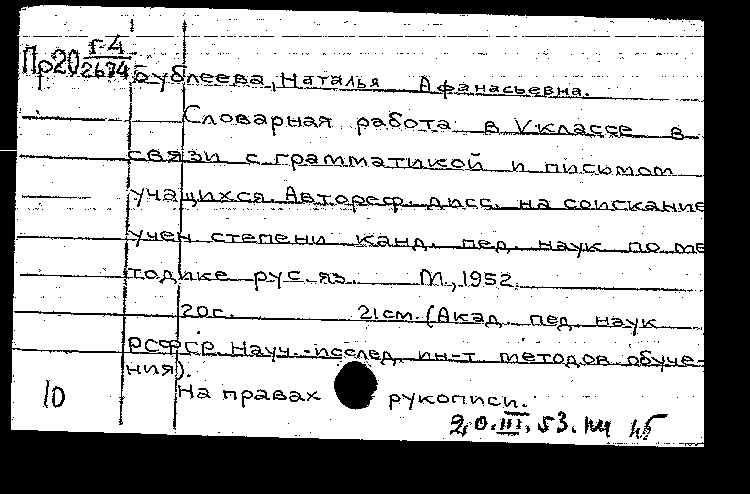 Пр20 Г-4/2674
Бублеева, Наталья Афанасьевна.
Словарная работа в V классе в
связи с грамматикой и письмом
учащихся. Автореф. дисс. на соискание
учен степени канд. пед. наук по ме
тодике рус. яз. М., 1952.
20с. 21см. (Акад. пед. наук
РСФСР. Науч.-исслед. ин-т методов обуче-
ния).
На правах рукописи.
10
20.III.53.